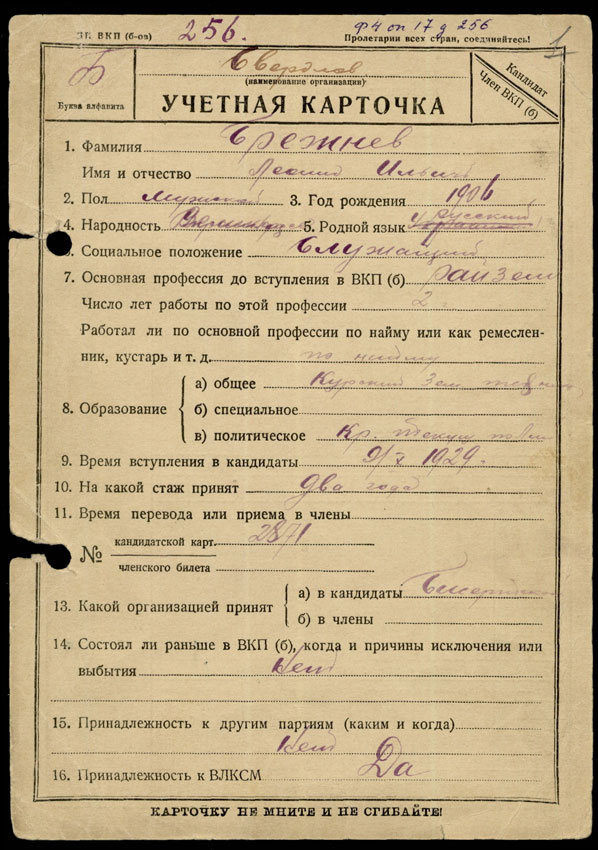 ВКП (б-ов) 256. Ф4 оп 17 д 256
Пролетарии всех стран, соединяйтесь!
1
Б
Буква алфавита
Свердлов
(наименование организации)
УЧЕТНАЯ КАРТОЧКА
Кандидат
Член ВКП (б)
1. Фамилия Брежнев
Имя и отчество Леонид Ильич
2. Пол Мужской 3. Год рождения 1906
русский
4. Народность 5. Родной язык
6. Социальное положение Служащий
7. Основная профессия до вступления в ВКП (б)
Число лет работы по этой профессии 2
Работал ли по основной профессии по найму или как ремеслен-
ник, кустарь и т. д. по найму
8. Образование
а) общее Курский Зем
б) специальное
в) политическое Кр.
9. Время вступления в кандидаты 9/V 1929.
10. На какой стаж принят два года
11. Время перевода или приема в члены
№
кандидатской карт. 2871
членского билета
13. Какой организацией принят
а) в кандидаты
б) в члены
14. Состоял ли раньше в ВКП (б), когда и причины исключения или
выбытия Нет
15. Принадлежность к другим партиям (каким и когда)
Нет
16. Принадлежность к ВЛКСМ Да
КАРТОЧКУ НЕ МНИТЕ И НЕ СГИБАЙТЕ!